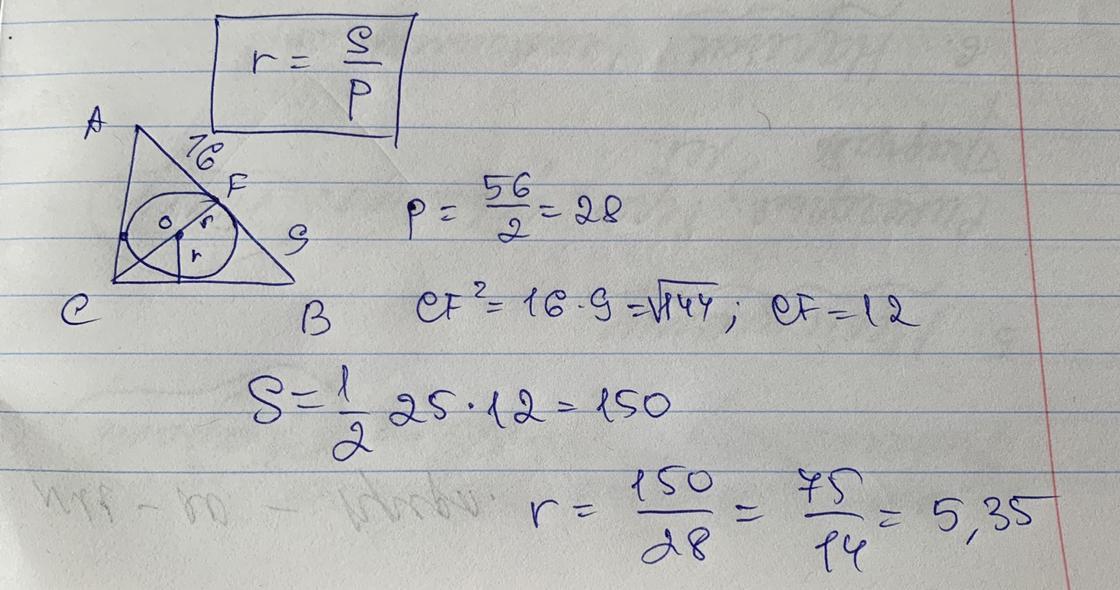 r = S/P
A
16
F
O r
r
9
C
B
P = 56/2 = 28
CF² = 16·9 = √144; CF = 12
S = 1/2 25·12 = 150
r = 150/28 = 75/14 = 5,35